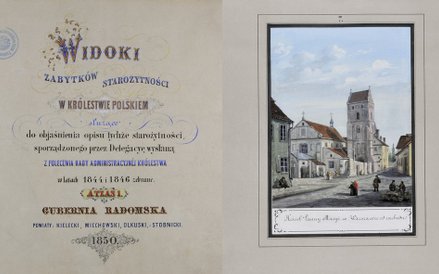 WIDOKI
ZABYTKÓW STAROŻYTNOŚCI
W KRÓLESTWIE POLSKIEM
służące
do objaśnienia opisu tychże starożytności,
sporządzonego przez Delegacyę wysłaną
Z POLECENIA RADY ADMINISTRACYJNEJ KRÓLESTWA
w latach 1844 i 1846 zebrane.
ATLAS I.
GUBERNIA RADOMSKA
POWIATY: KIELECKI, MIECHOWSKI, OLKUSKI, STOBNICKI.
1850.
Kościół Panny Maryi w Warszawie